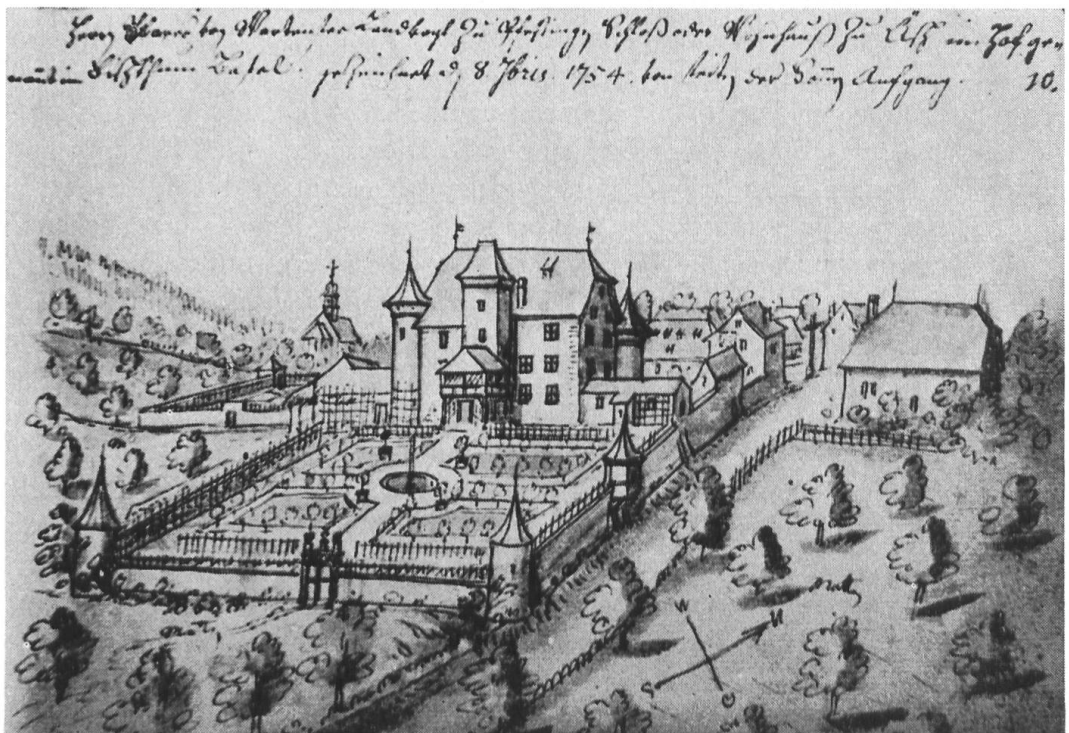 Herrn Blarer von Wartensee Landvogt zu Pfeffingen Schloß oder Wohnhauß zu Äsch im Hof ge-
nannt im Bischthum Basel. gezeichnet d. 8 7bris. 1754. von seiten der Sonn Aufgang. 10.
W
N
S
O